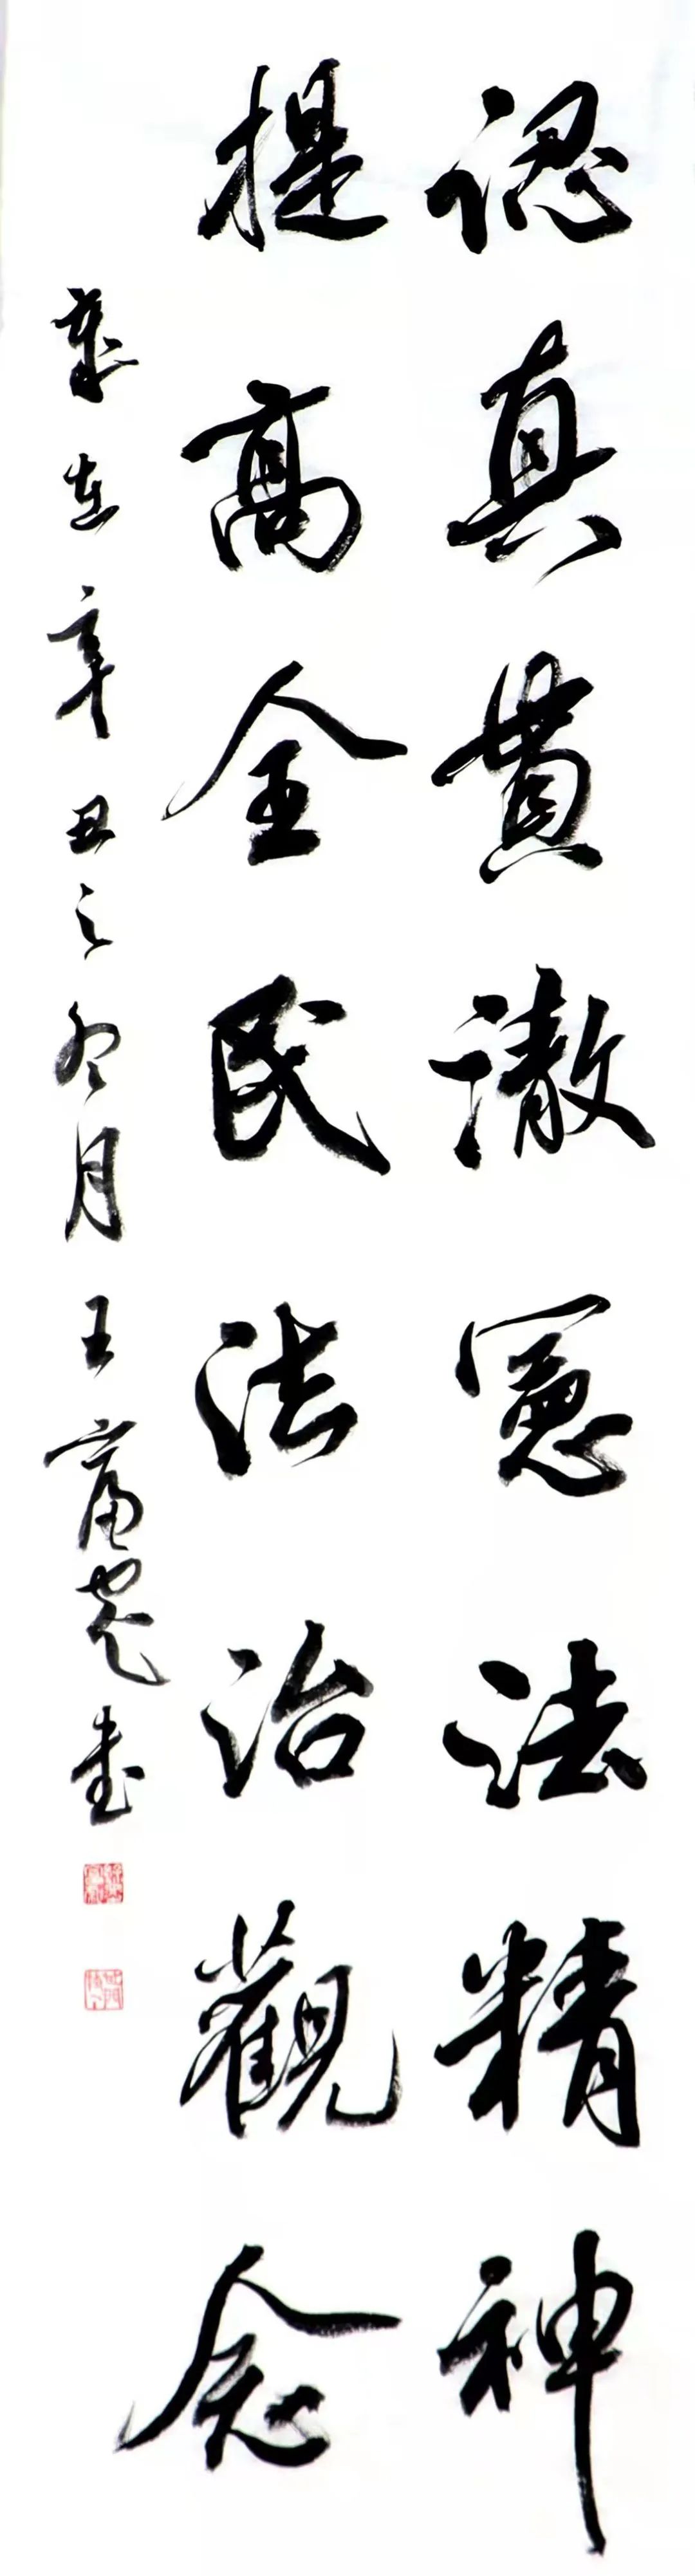 認真貫澈憲法精神
提高全民法治觀念
歲在辛丑之冬月王富安書